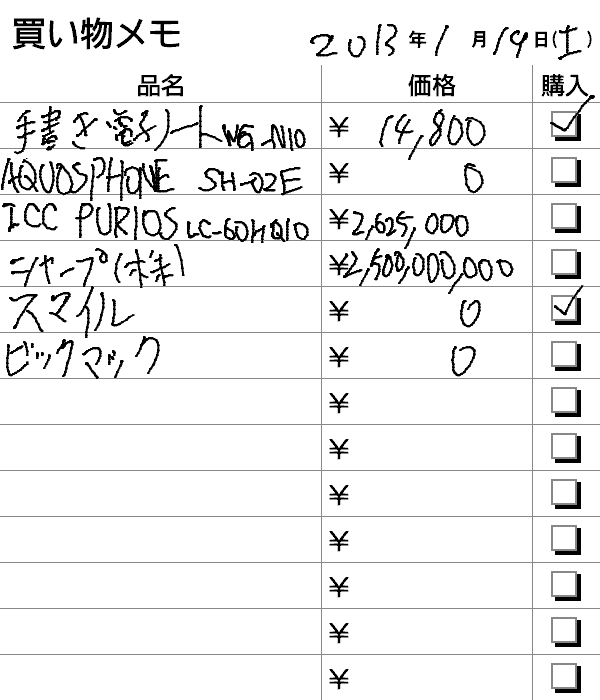 買い物メモ 2013年1月19日(土)
品名 価格 購入
手書き電子ノートWG-N10 ¥ 14,800
AQUOSPHONE SH-02E ¥ 0
ICC PURIOS LC-60HQ10 ¥2,625,000
シャープ(株) ¥2,500,000,000
スマイル ¥ 0
ビックマック ¥ 0
¥
¥
¥
¥
¥
¥
¥